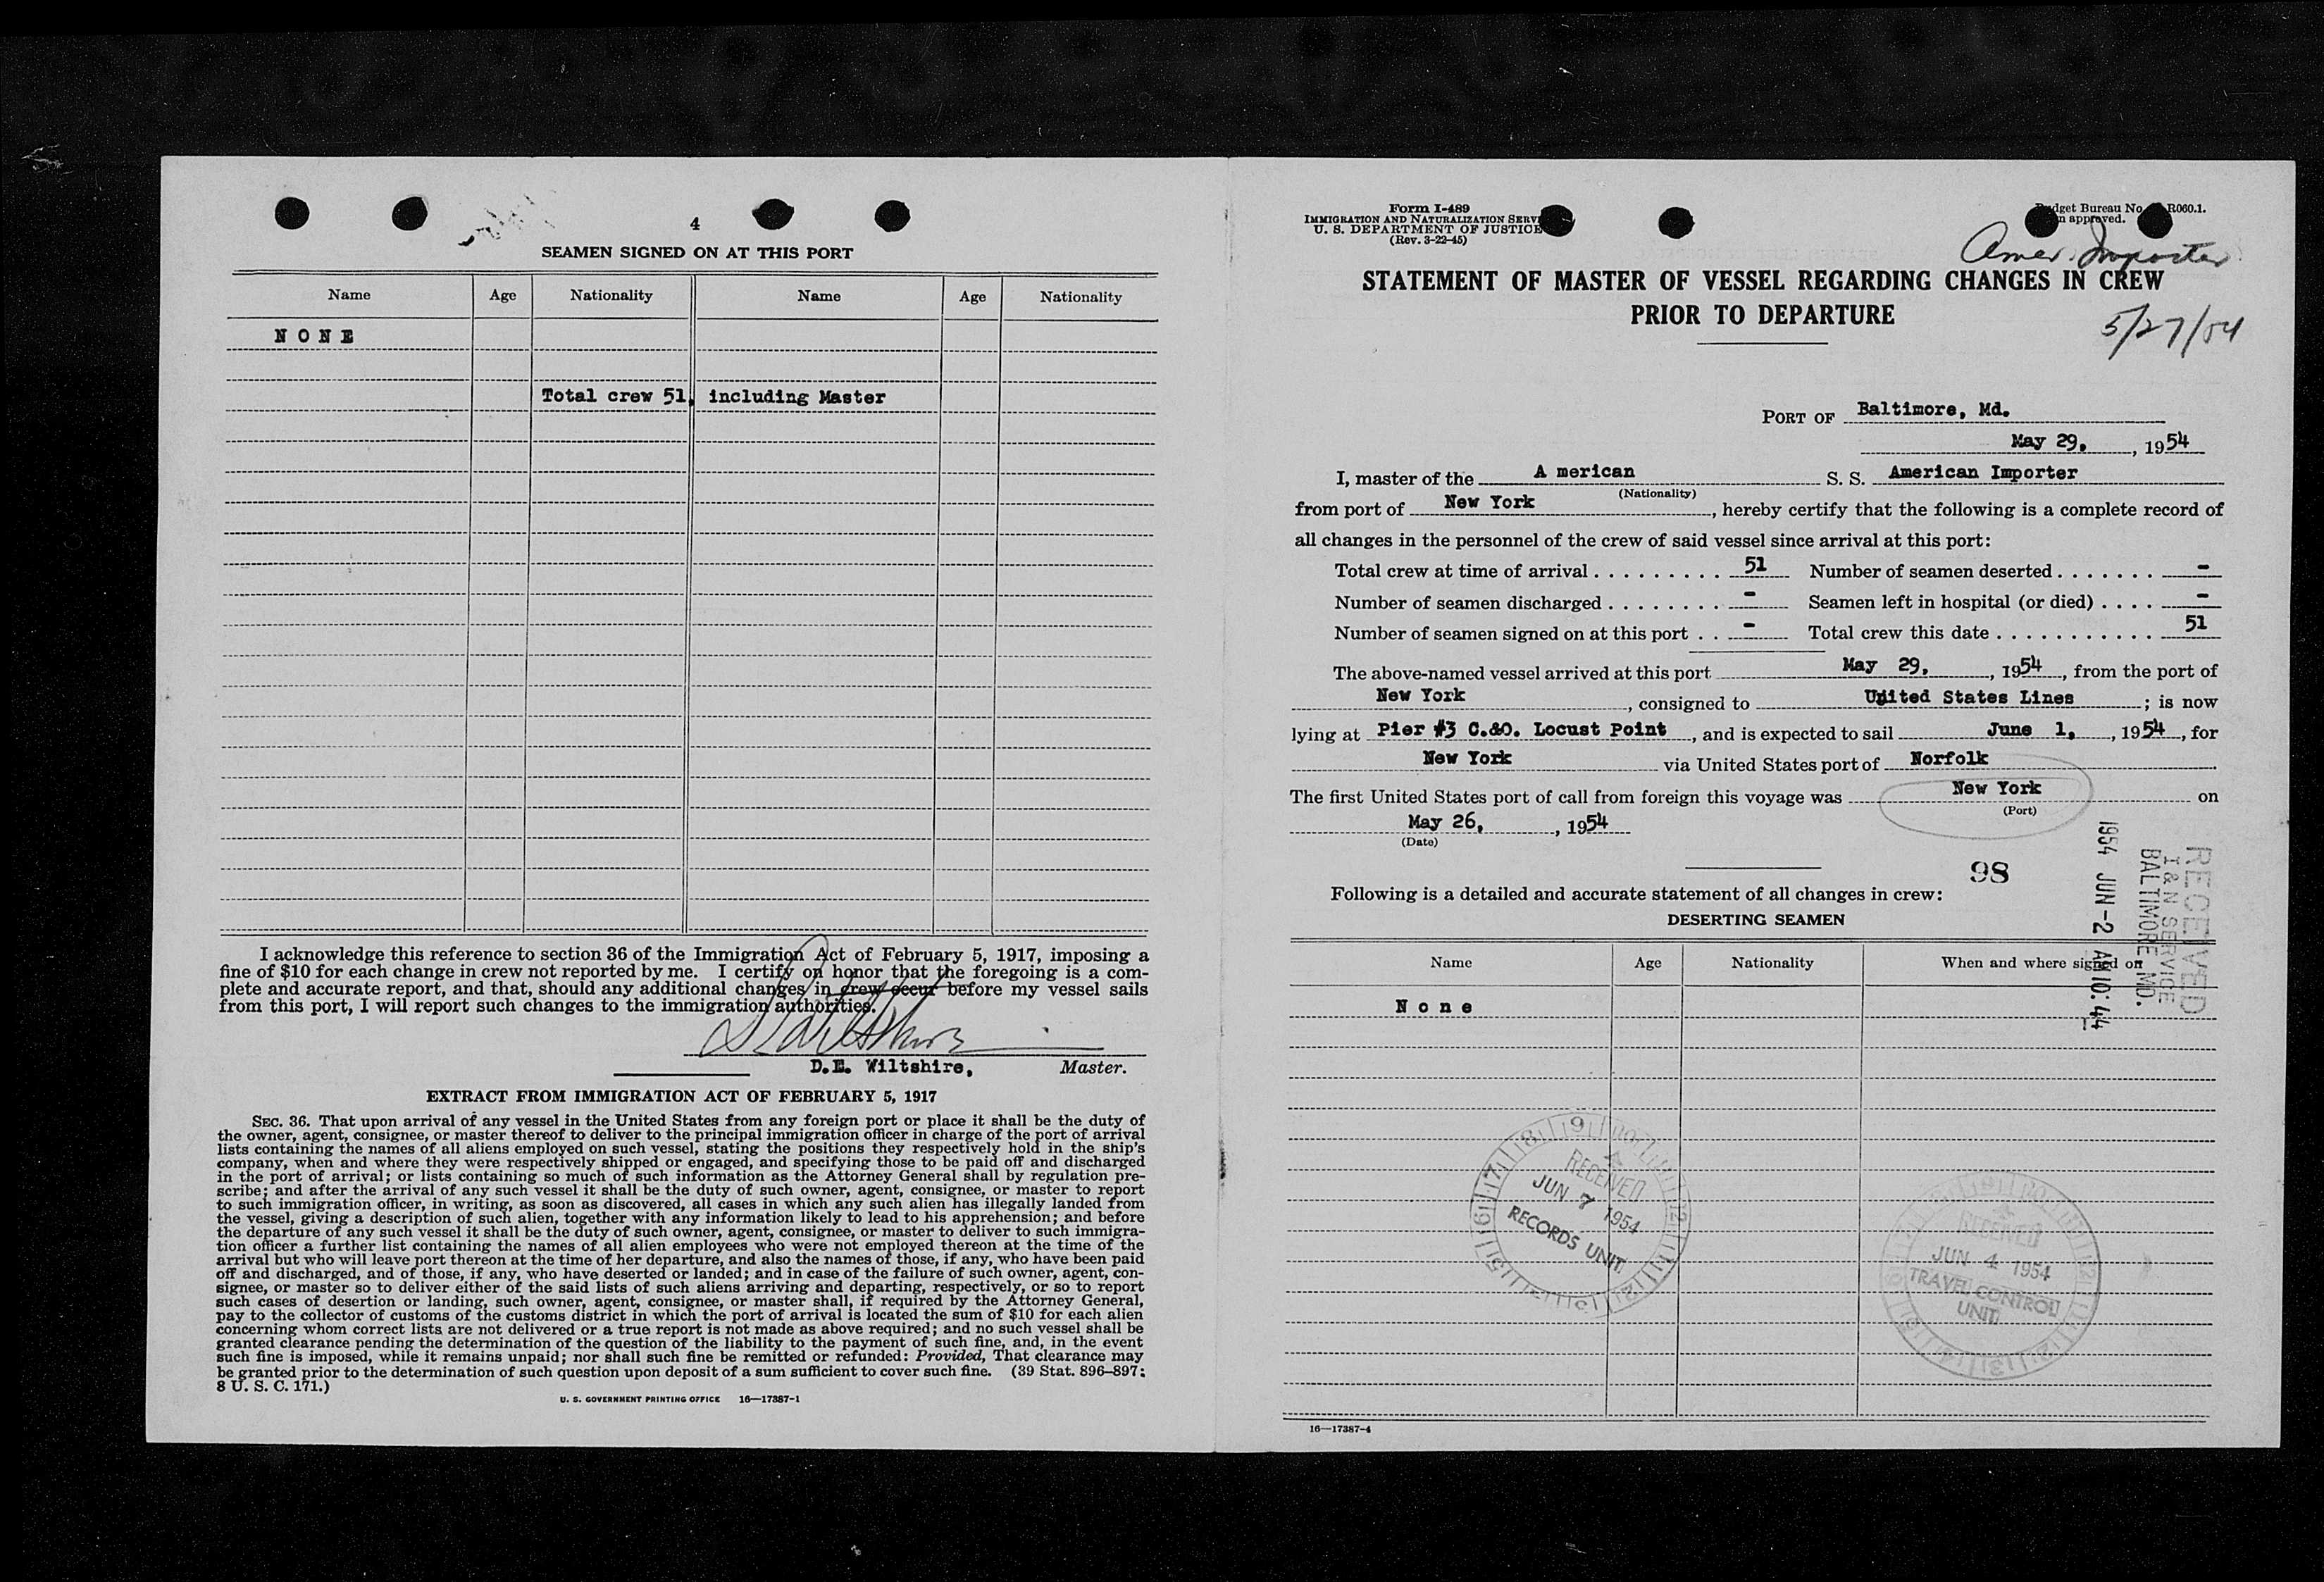 4
SEAMEN SIGNED ON AT THIS PORT
Name Age Nationality Name Age Nationality
NONE
Total crew 51, including Master
I acknowledge this reference to section 36 of the Immigration Act of February 5, 1917, imposing a
fine of $10 for each change in crew not reported by me. I certify on honor that the foregoing is a com-
plete and accurate report, and that, should any additional changes in crew occur before my vessel sails
from this port, I will report such changes to the immigration authorities.
D.E. Wiltshire, Master.
EXTRACT FROM IMMIGRATION ACT OF FEBRUARY 5, 1917
SEC. 36. That upon arrival of any vessel in the United States from any foreign port or place it shall be the duty of
the owner, agent, consignee, or master thereof to deliver to the principal immigration officer in charge of the port of arrival
lists containing the names of all aliens employed on such vessel, stating the positions they respectively hold in the ship's
company, when and where they were respectively shipped or engaged, and specifying those to be paid off and discharged
in the port of arrival; or lists containing so much of such information as the Attorney General shall by regulation pre-
scribe; and after the arrival of any such vessel it shall be the duty of such owner, agent, consignee, or master to report
to such immigration officer, in writing, as soon as discovered, all cases in which any such alien has illegally landed from
the vessel, giving a description of such alien, together with any information likely to lead to his apprehension; and before
the departure of any such vessel it shall be the duty of such owner, agent, consignee, or master to deliver to such immigra-
tion officer a further list containing the names of all alien employees who were not employed thereon at the time of the
arrival but who will leave port thereon at the time of her departure, and also the names of those, if any, who have been paid
off and discharged, and of those, if any, who have deserted or landed; and in case of the failure of such owner, agent, con-
signee, or master so to deliver either of the said lists of such aliens arriving and departing, respectively, or so to report
such cases of desertion or landing, such owner, agent, consignee, or master shall, if required by the Attorney General,
pay to the collector of customs of the customs district in which the port of arrival is located the sum of $10 for each alien
concerning whom correct lists are not delivered or a true report is not made as above required; and no such vessel shall be
granted clearance pending the determination of the question of the liability to the payment of such fine, and, in the event
such fine is imposed, while it remains unpaid; nor shall such fine be remitted or refunded: Provided, That clearance may
be granted prior to the determination of such question upon deposit of a sum sufficient to cover such fine. (39 Stat. 896–897;
8 U. S. C. 171.)
U. S. GOVERNMENT PRINTING OFFICE 16—17387-1
Form I-489
IMMIGRATION AND NATURALIZATION
U. S. DEPARTMENT OF JUSTICE
(Rev. 3-22-45)
Bureau No. R060.1.
approved.
Amer. Importer
STATEMENT OF MASTER OF VESSEL REGARDING CHANGES IN CREW
PRIOR TO DEPARTURE
5/27/54
PORT OF Baltimore, Md.
May 29, , 1954
I, master of the A merican S. S. American Importer
(Nationality)
from port of New York , hereby certify that the following is a complete record of
all changes in the personnel of the crew of said vessel since arrival at this port:
Total crew at time of arrival . . . . . . . . . 51 Number of seamen deserted . . . . . . . -
Number of seamen discharged . . . . . . . . - Seamen left in hospital (or died) . . . . -
Number of seamen signed on at this port . . - Total crew this date . . . . . . . . . . . . 51
The above-named vessel arrived at this port May 29, , 1954 , from the port of
New York , consigned to United States Lines ; is now
lying at Pier #3 C.&O. Locust Point , and is expected to sail June 1, , 1954 , for
New York via United States port of Norfolk
The first United States port of call from foreign this voyage was New York on
(Port)
May 26, , 1954
(Date)
98
RECEIVED
I & N SERVICE
BALTIMORE MD.
1954 JUN -2 AM 10:44
Following is a detailed and accurate statement of all changes in crew:
DESERTING SEAMEN
Name Age Nationality When and where signed on
None
RECEIVED
JUN 7 1954
RECORDS UNIT
RECEIVED
JUN 4 1954
TRAVEL CONTROL
UNIT
16—17387-4